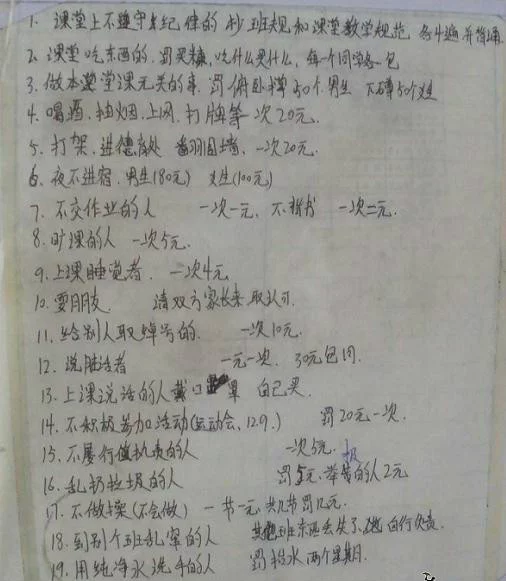 1. 课堂上不遵守纪律的 抄班规和课堂教学规范 各4遍并背诵
2. 课堂吃东西的.罚买糖,吃什么买什么,每个同学各一包
3. 做本堂课无关的事.罚俯卧撑50个男生 下蹲50个女生
4. 喝酒.抽烟.上网.打牌等一次20元.
5. 打架.进德育处 翻围墙.一次20元.
6. 夜不进宿.男生(80元) 女生(100元)
7. 不交作业的人 一次一元.不背书 一次二元.
8. 旷课的人 一次5元.
9. 上课睡觉者. 一次4元
10. 耍朋友. 请双方家长来取认可.
11. 给别人取绰号的. 一次10元.
12. 说脏话者 一元一次. 30元包月.
13. 上课说话的人戴口罩 自己买.
14. 不积极参加活动(运动会、12.9.) 罚20元一次.
15. 不履行值执责的人 一次5元.
16. 乱扔垃圾的人 罚5元.举报的人2元
17. 不做操(不会做) 一节一元.共几节罚几元.
18. 到别个班乱窜的人 其他班东西丢失了.自行负责.
19. 用纯净水洗手的人 罚抬水两个星期.